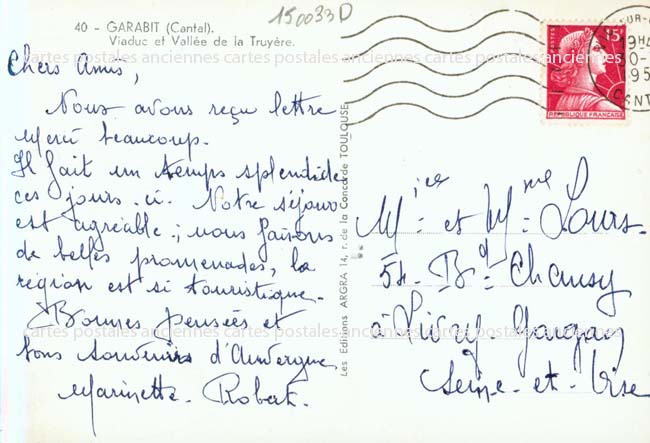 150033D
40 - GARABIT (Cantal).
Viaduc et Vallée de la Truyère.
cartes postales anciennes cartes postales anciennes cartes postales anciennes
Chers Amis,
Nous avons reçu lettre
Merci beaucoup.
Il fait un temps splendide
ces jours-ci. Notre séjour
est agréable; nous faisons
de belles promenades, la
région est si touristique.
Bonnes pensées et
cartes postales anciennes cartes postales anciennes cartes postales anciennes
bons souvenirs d'Auvergne
Marinette. Robert.
Les Editions ARGRA 14, r. de la Concorde TOULOUSE
POSTES
15F
REPUBLIQUE FRANÇAISE
UR-
19H
195
CANT
et Mme Louis
54. Bd Chansy
à Livry-Gargan
Seine-et-Oise